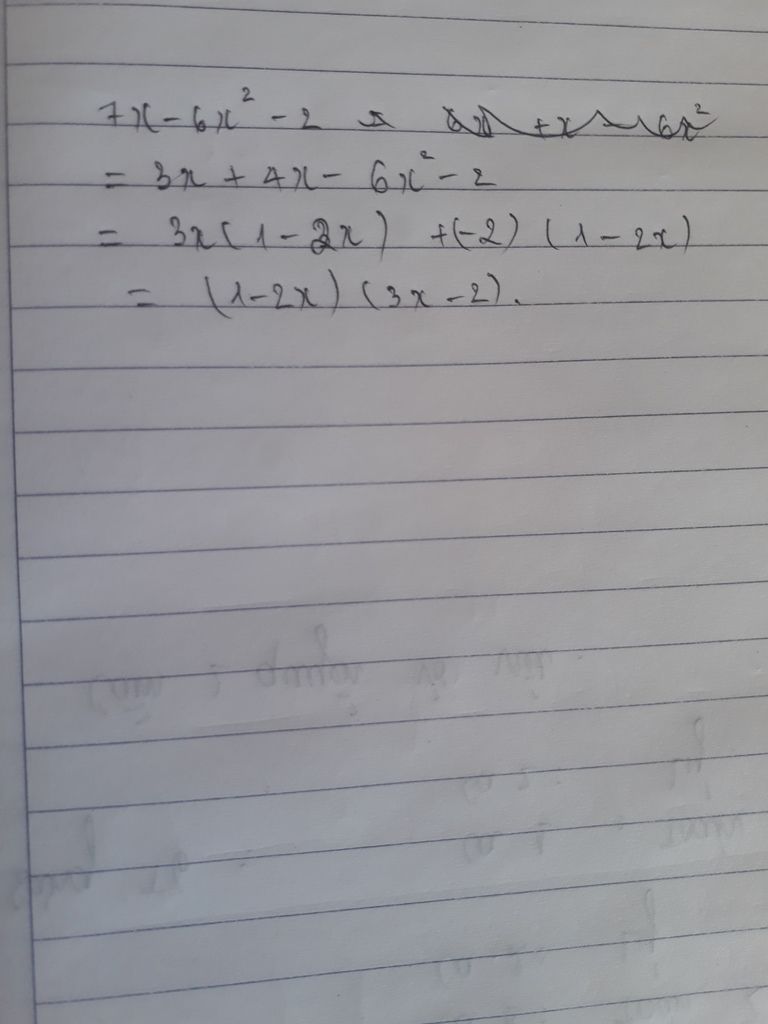 7x - 6x² - 2
= 3x + 4x - 6x² - 2
= 3x(1 - 2x) + (-2) (1 - 2x)
= (1-2x) (3x - 2).